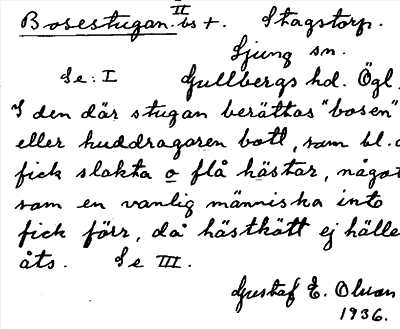 Bosestugan. II bs +. Stagstorp.
Ljung sn.
Se: I Gullbergs hd. Ögl.
I den där stugan berättas "bosen"
eller huddragaren bott, som bl.a
fick slakta o flå hästar, något
som en vanlig människa inte
fick förr, då hästkött ej hälle
åts. Se III.
Gustaf E. Olson
1936.